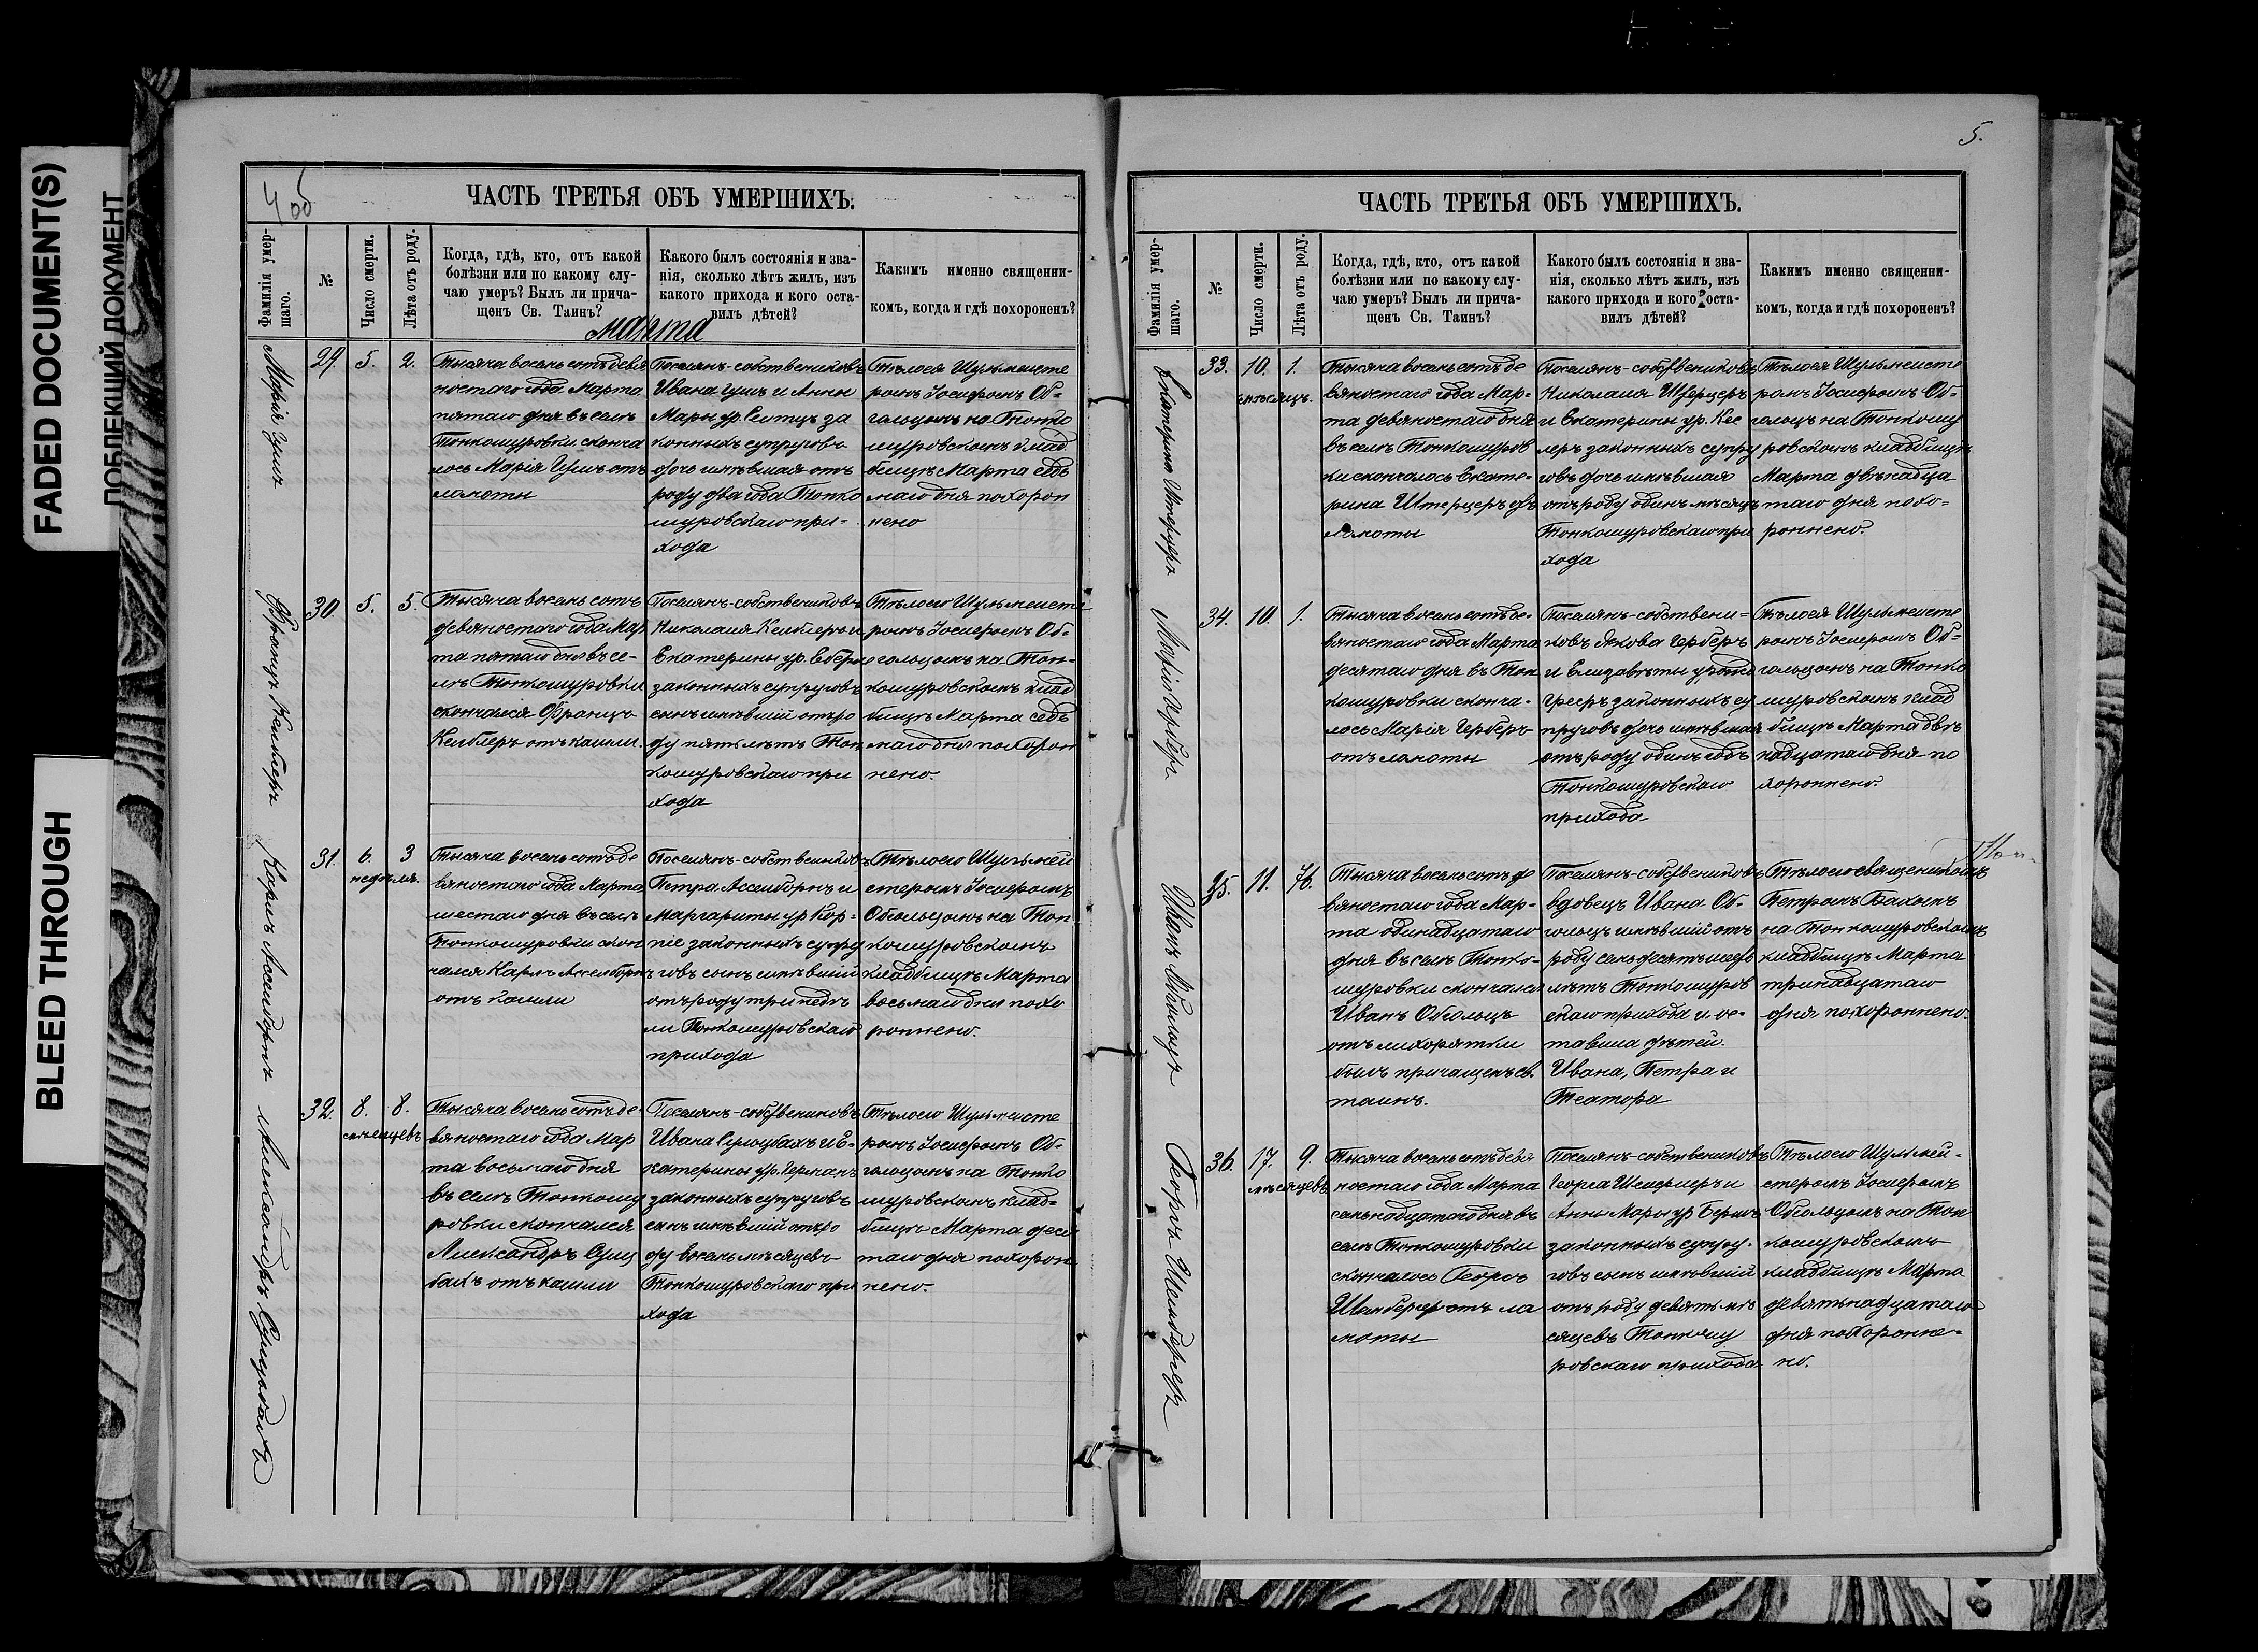 FADED DOCUMENT(S)
ПОБЛЕКШИЙ ДОКУМЕНТ
BLEED THROUGH
4 об
ЧАСТЬ ТРЕТЬЯ ОБЪ УМЕРШИХЪ.
Фамилія умер-
шаго.
№
Число смерти.
Лѣта отъ роду.
Когда, гдѣ, кто, отъ какой
болѣзни или по какому слу-
чаю умеръ? Былъ ли прича-
щенъ Св. Таинъ?
Какого былъ состоянія и зва-
нія, сколько лѣтъ жилъ, изъ
какого прихода и кого оста-
вилъ дѣтей?
Какимъ именно священни-
комъ, когда и гдѣ похороненъ?
Марта
Марія Гушъ
29. 5. 2.
Тысяча восемь сотъ девя
ностаго года Марта
пятаго дня въ селѣ
Тонкошуровки сконча
лось Марія Гушъ отъ
ломоты
Поселянъ-собствениковъ
Ивана Гушъ и Анны
Мары ур. Сеитцъ за
конныхъ супруговъ
дочь имѣвшая отъ
роду два года Тонко
шуровскаго при-
хода
Тѣлоея Шульмеисте
ромъ Іосифомъ Об-
гольцомъ на Тонко
шуровскомъ клад
бищѣ Марта седь
маго дня похорон
нено
Францъ Кеиблеръ
30 5. 5.
Тысяча восемь сотъ
девяностаго года Мар
та пятаго дня въ се-
лѣ Тонкошуровки
скончался Францъ
Кеиблеръ отъ кашли.
Поселянъ-собствениковъ
Николая Кеиблеръ и
Екатерины ур.
законныхъ супруговъ
сынъ имѣвшій отъ ро
ду пять лѣтъ Тон
кошуровскаго при
хода
Тѣлоего Шульмеисте
ромъ Іосифомъ Об-
гольцомъ на Тон-
кошуровскомъ клад
бищѣ Марта седь
маго дня похорон
нено.
Карлъ Асселборнъ
31. 6. 3
недѣля.
Тысяча восемь сотъ де
вяностаго года Марта
шестаго дня въ селѣ
Тонкошуровки скон
чался Карлъ Асселборнъ
отъ кашли
Поселянъ-собствениковъ
Петра Асселборнъ и
Маргариты ур Кор-
піе законныхъ супру
говъ сынъ имѣвшій
отъ роду три недѣ
ли Тонкошуровскаго
прихода
Тѣлоего Шульмей
стеромъ Іосифомъ
Обгольцомъ на Тон
кошуровскомъ
кладбищѣ Марта
восьмаго дня похо
роннено.
Александръ Сулцбахъ
32. 8. 8.
мѣсяцевъ
Тысяча восемь сотъ де-
вяностаго года Мар
та восьмаго дня
въ селѣ Тонкошу
ровки скончался
Александръ Сулц
бахъ отъ кашли
Поселянъ-собствениковъ
Ивана Сулцбахъ и Е-
катерины ур. Германъ
законныхъ супруговъ
сынъ имѣвшій отъ ро
ду восемь мѣсяцевъ
Тонкошуровскаго при
хода
Тѣлоего Шульмеисте
ромъ Іосифомъ Об-
гольцомъ на Тонко
шуровскомъ клад-
бищѣ Марта деся
таго дня похорон
нено.
5.
ЧАСТЬ ТРЕТЬЯ ОБЪ УМЕРШИХЪ.
Фамилія умер-
шаго.
№
Число смерти.
Лѣта отъ роду.
Когда, гдѣ, кто, отъ какой
болѣзни или по какому слу-
чаю умеръ? Былъ ли прича-
щенъ Св. Таинъ?
Какого былъ состоянія и зва-
нія, сколько лѣтъ жилъ, изъ
какого прихода и кого оста-
вилъ дѣтей?
Какимъ именно священни-
комъ, когда и гдѣ похороненъ?
Екатерина Штерцеръ
33. 10. 1.
мѣсяцъ.
Тысяча восемь сотъ де
вяностаго года Мар-
та девяностаго дня
въ селѣ Тонкошуров
ки скончалось Екате-
рина Штерцеръ отъ
ломоты
Поселянъ-собствениковъ
Николая Штерцеръ
и Екатерины ур. Кес
леръ законныхъ супру
говъ дочь имѣвшая
отъ роду одинъ мѣсяцъ
Тонкошуровскаго при
хода
Тѣлоея Шульмеисте
ромъ Іосифомъ Об-
гольцъ на Тонкошу
ровскомъ кладбищѣ
Марта двѣнадца
таго дня похо-
роннено.
Марія Герберъ
34. 10. 1.
Тысяча восемь сотъ де-
вяностаго года Марта
десятаго дня въ Тон
кошуровки сконча-
лось Марія Герберъ
отъ ломоты
Поселянъ-собствени-
ковъ Якова Герберъ
и Елизаветы
законныхъ су
пруговъ дочь имѣвшая
отъ роду одинъ годъ
Тонкошуровскаго
прихода
Тѣлоея Шульмеисте
ромъ Іосифомъ Об-
гольцомъ на Тонко
шуровскомъ клад
бищѣ Марта двѣ
надцатаго дня по
хороннено.
Иванъ Обгольцъ
35. 11. 76.
Тысяча восемь сотъ де
вяностаго года Мар-
та одинадцатаго
дня въ селѣ Тонко-
шуровки скончался
Иванъ Обгольцъ
отъ лихорятки
былъ причащенъ св.
таинъ.
Поселянъ-собствениковъ
вдовецъ Ивана Об-
гольцъ имѣвшій отъ
роду семьдесятъ шесть
лѣтъ Тонкошуров
скаго прихода и ос-
тавила дѣтей.
Ивана, Петра и
Театора
Тѣлоего священикомъ
Петромъ Бахомъ
на Тонкошуровскомъ
кладбищѣ Марта
тринадцатаго
дня похороннено.
Георгъ Шелбергеръ
36. 17. 9.
мѣсяцевъ
Тысяча восемь сотъ девя
ностаго года Марта
семьнадцатаго дня въ
селѣ Тонкошуровки
скончалось Георгъ
Шелбергеръ отъ ло
моты
Поселянъ-собствениковъ
Георга и
Анны Мары ур
законныхъ супру-
говъ сынъ имѣвшій
отъ роду девять мѣ
сяцевъ Тонкошу
ровскаго прихода
Тѣлоего Шульмей-
стеромъ Іосифомъ
Обгольцомъ на Тон
кошуровскомъ
кладбищѣ Марта
девятьнадцатаго
дня похоронне-
но.